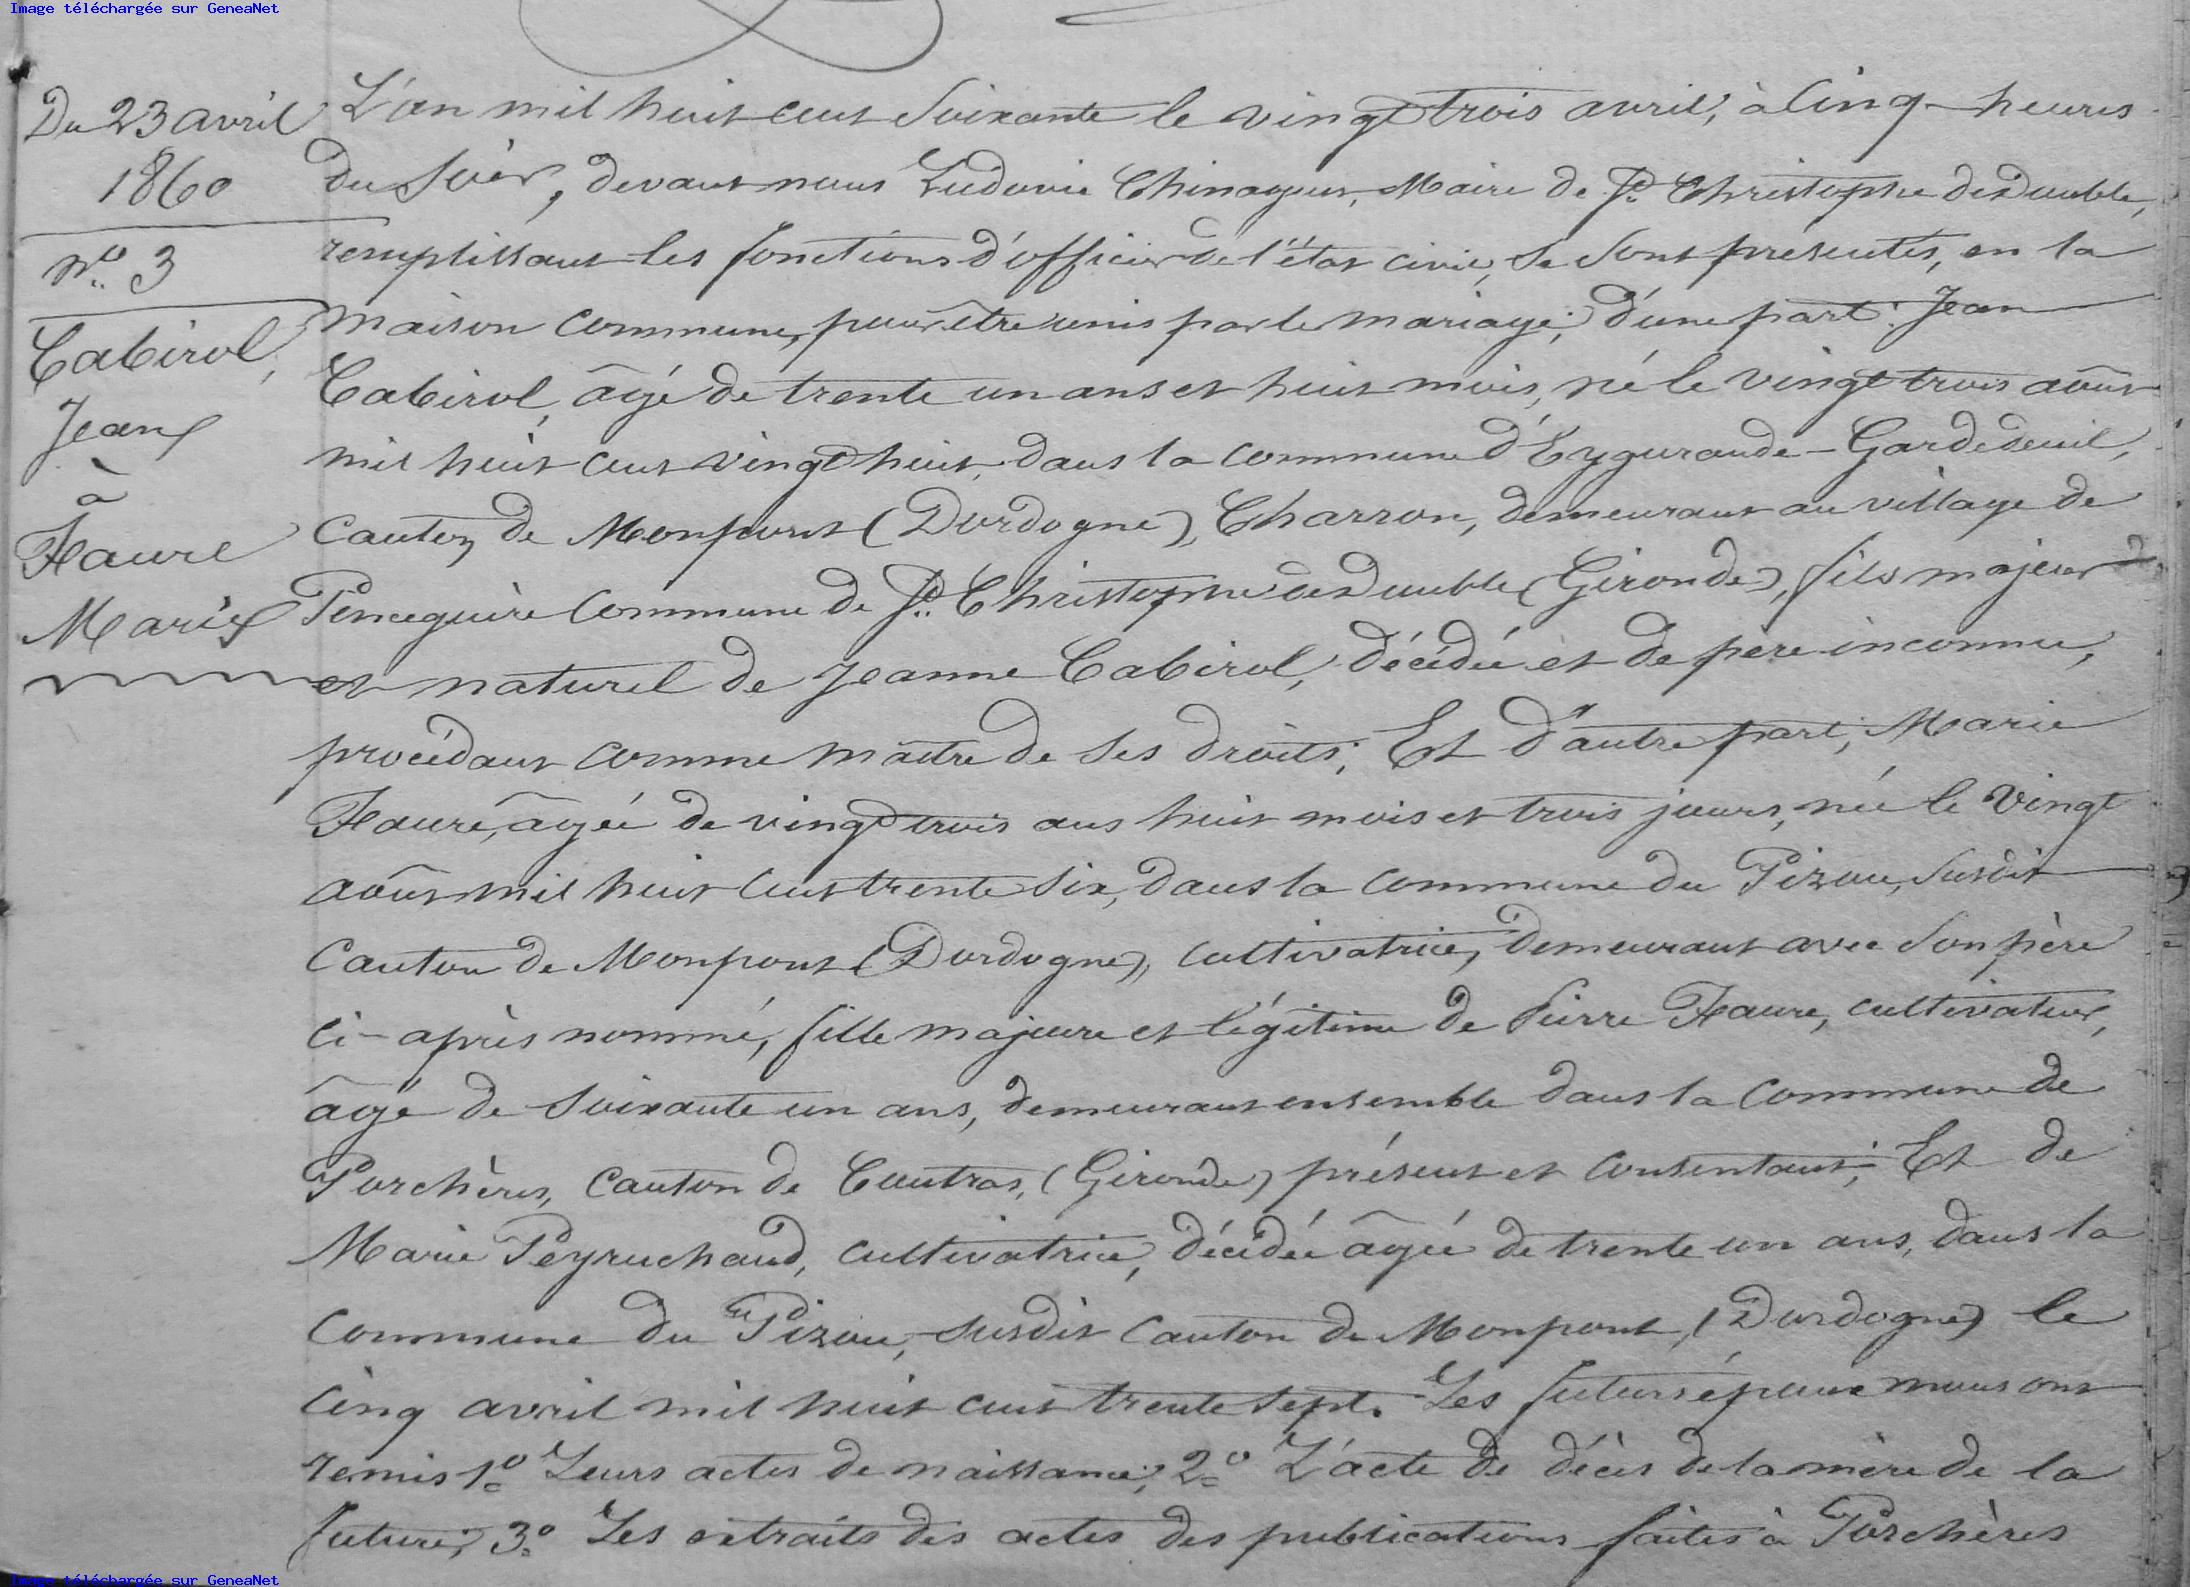 Image téléchargée sur GeneaNet
Du 23 avril
1860
No. 3
Cabirol,
Jean
à
Faure
Marie
L'an mil huit cent soixante le vingt trois avril, à cinq heures
du soir, devant nous Ludovic Chinagour, Maire de St. Christophe de Double,
remplissant les fonctions d'officier de l'état civil, se sont présentés, en la
maison commune, pour être unis par le mariage; d'une part: Jean
Cabirol, âgé de trente un ans et huit mois, né le vingt trois août
mil huit cent vingt huit, dans la commune d'Eygurande-Gardedeuil,
canton de Monpont (Dordogne), Charron, demeurant au village de
commune de St. Christophe de Double (Gironde), fils majeur
et naturel de Jeanne Cabirol, décédée et de père inconnu,
procédant comme maître de ses droits; Et d'autre part, Marie
Faure, âgée de vingt trois ans huit mois et trois jours, née le vingt
août mil huit cent trente six, dans la commune du Pizou, susdit
canton de Monpont (Dordogne), cultivatrice, demeurant avec son père
ci-après nommé, fille majeure et légitime de Pierre Faure, cultivateur,
âgé de soixante un ans, demeurant ensemble dans la commune de
Porchères, canton de Coutras, (Gironde) présent et consentant; Et de
Marie Peyruchaud, cultivatrice, décédée âgée de trente un ans, dans la
commune du Pizou, susdit canton de Monpont, (Dordogne) le
cinq avril mil huit cent trente sept. Les futurs époux nous ont
remis 1o. Leurs actes de naissance; 2o. L'acte de décès de la mère de la
future; 3o. Les extraits des actes des publications faites à Porchères
Image téléchargée sur GeneaNet